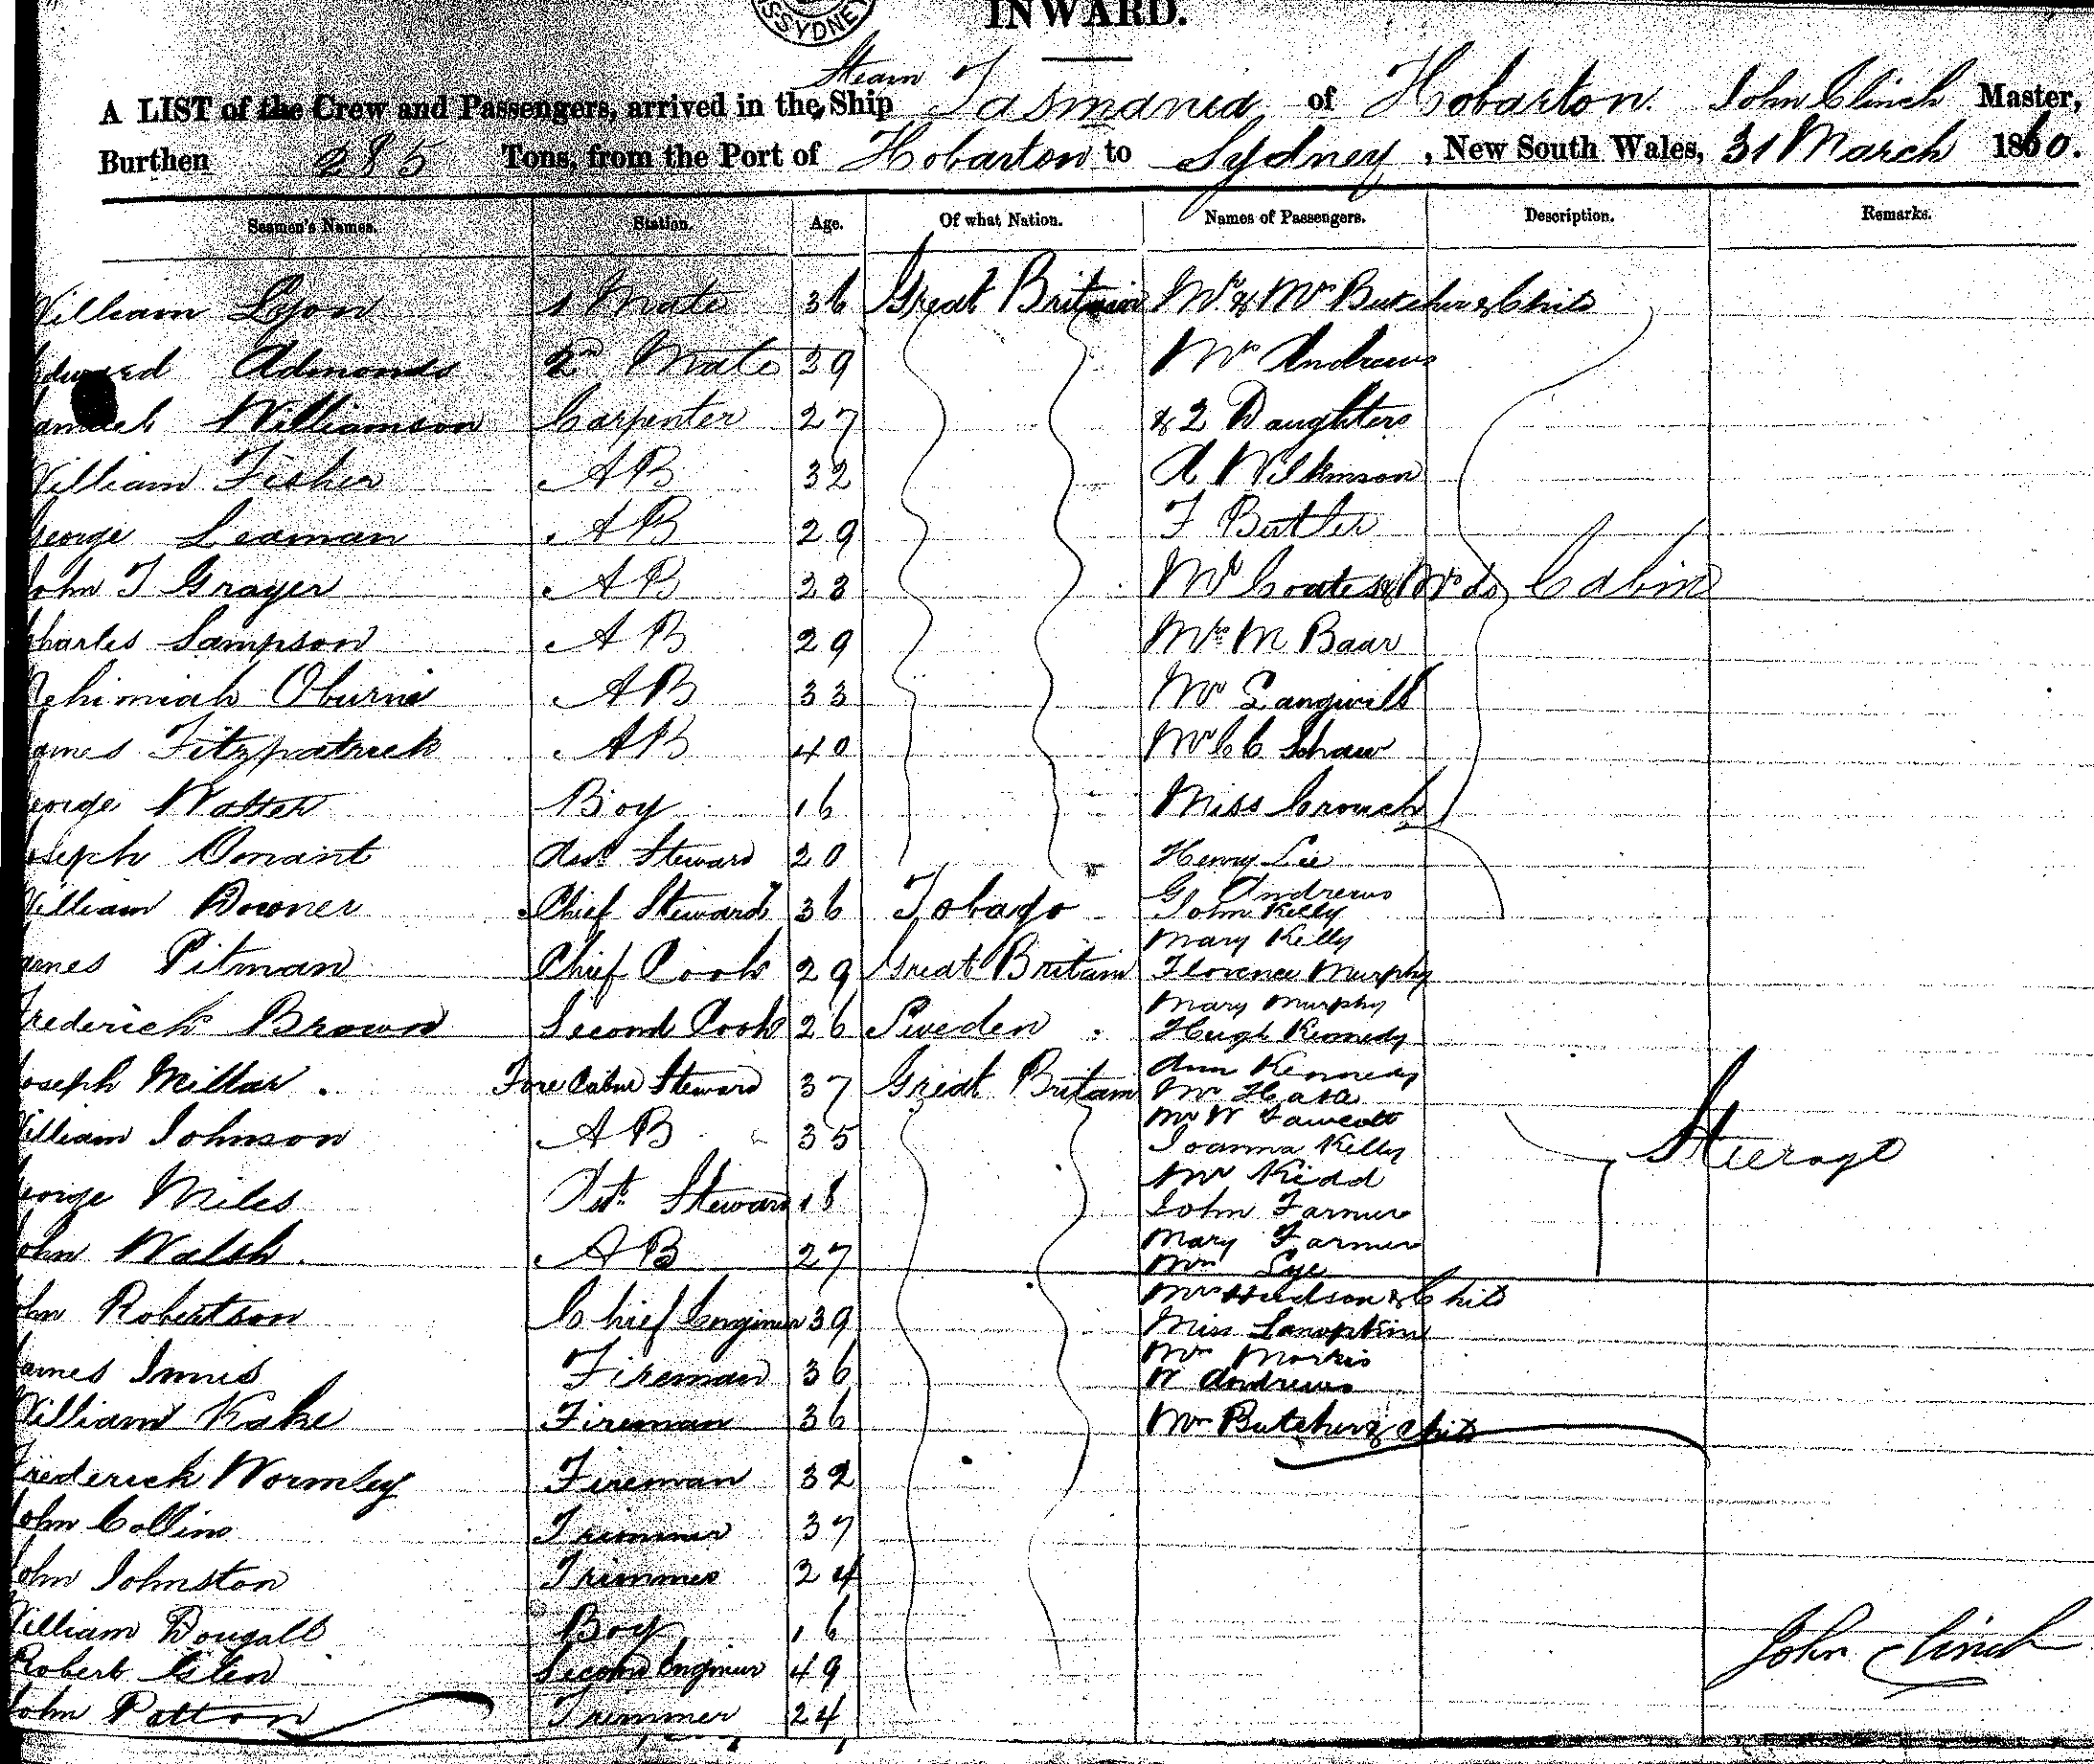 SYDNEY
INWARD.
Steam
A LIST of the Crew and Passengers, arrived in the Ship Tasmania of Hobarton. John Clinch Master,
Burthen 285 Tons, from the Port of Hobarton to Sydney, New South Wales, 31 March 1860.
Seamen's Names. Station. Age. Of what Nation. Names of Passengers. Description. Remarks.
William Lyon 1 Mate 36 Great Britain Mr. & Mrs Butcher & Child
Edward Admonds 2nd Mate 39 Mrs Andrews
Williamson Carpenter 27 & 2 Daughters
William Fisher AB 32 A Wilkinson
George Leaman AB 29 F Butler
John T Grayer AB 23 Mr Coates & Mrs do Cabin
Charles Sampson AB 29 M Baar
Nehimiah Oburne AB 33 Mr
James Fitzpatrick AB 40 Mr C C Shaw
George Boy 16 Miss Crouch
Joseph Steward 20 Henry Lee
William Downer Chief Steward 36 Tobago G Andrews
John Kelly
Mary Kelly
James Pitman Chief Cook 29 Great Britain Florence Murphy
Mary Murphy
Frederick Brown Second Cook 26 Sweden Hugh Kennedy
Ann Kennedy
Joseph Millar. Fore Cabin Steward 37 Great Britain Mr
Mr W Fawcett
William Johnson AB 35 Joanna Kelly Steerage
Mr Kidd
George Miles Steward 18 John Farmer
Mary Farmer
John Walsh. AB 27
Mrs Hudson & Child
John Robertson Chief Engineer 39 Miss
James Innis Fireman 36 Morris
W Andrews
William Kake Fireman 36 Butcher & Child
Frederick Wormley Fireman 32
John Collins Trimmer 37
John Johnston Trimmer 24
William Dougall Boy 16
Robert Glen Second Engineer 49 John Clinch
John Patton Trimmer 24